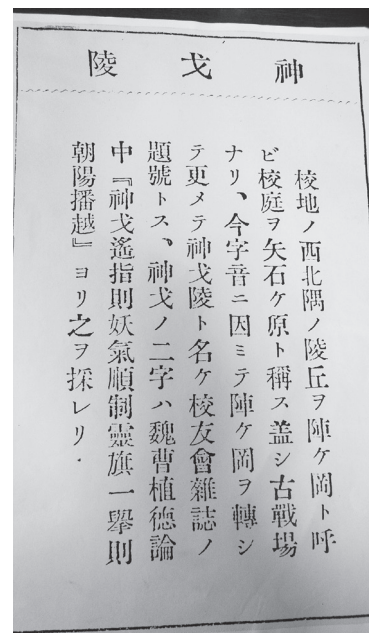 神戈陵
校地ノ西北隅ノ陵丘ヲ陣ケ岡ト呼
ビ校庭ヲ矢石ケ原ト稱ス盖シ古戰場
ナリ、今字音ニ因ミテ陣ケ岡ヲ轉シ
テ更メテ神戈陵ト名ケ校友會雜誌ノ
題號トス、神戈ノ二字ハ魏曹植德論
中『神戈遙指則妖氣順制靈旗一擧則
朝陽播越』ヨリ之ヲ採レリ.